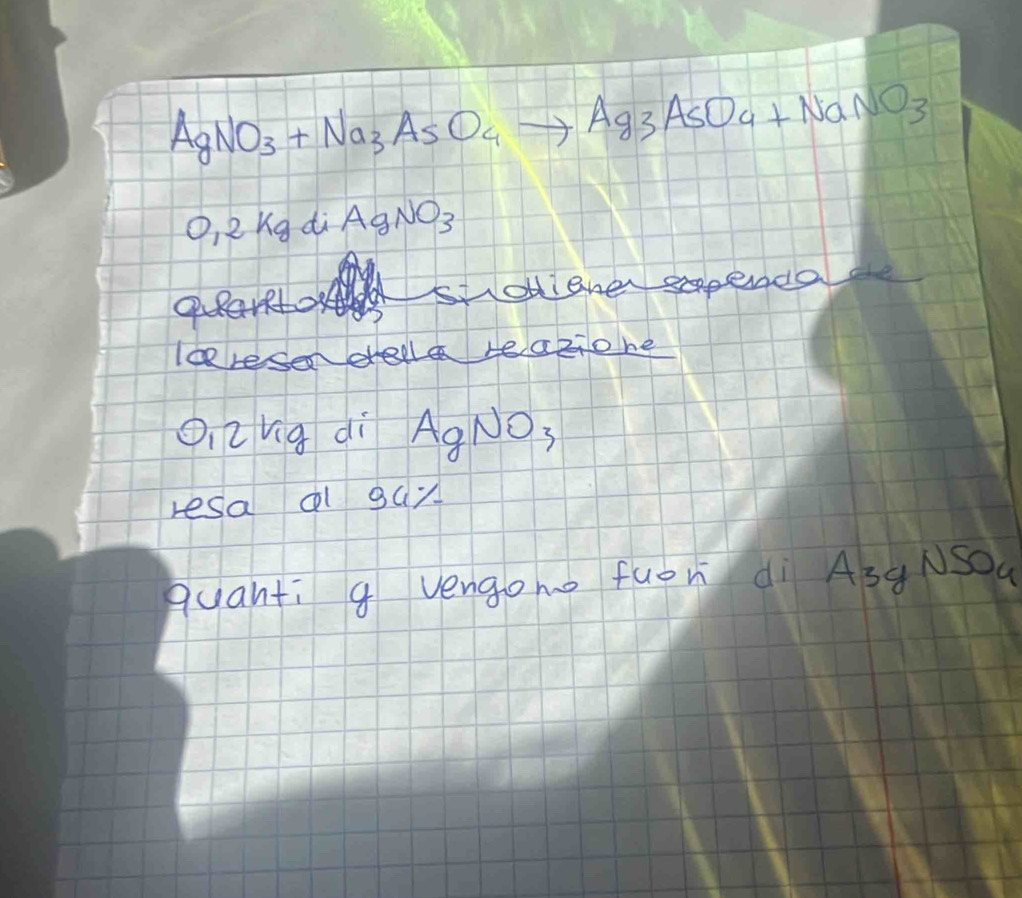 AgNO₃ + Na₃AsO₄ → Ag₃AsO₄ + NaNO₃
0,2 Kg di AgNO₃
quanto si ottiene sapendo
la resa della reazione
0,2 Kg di AgNO₃
resa al 94%
quanti g vengono fuori di A₃gNSO₄